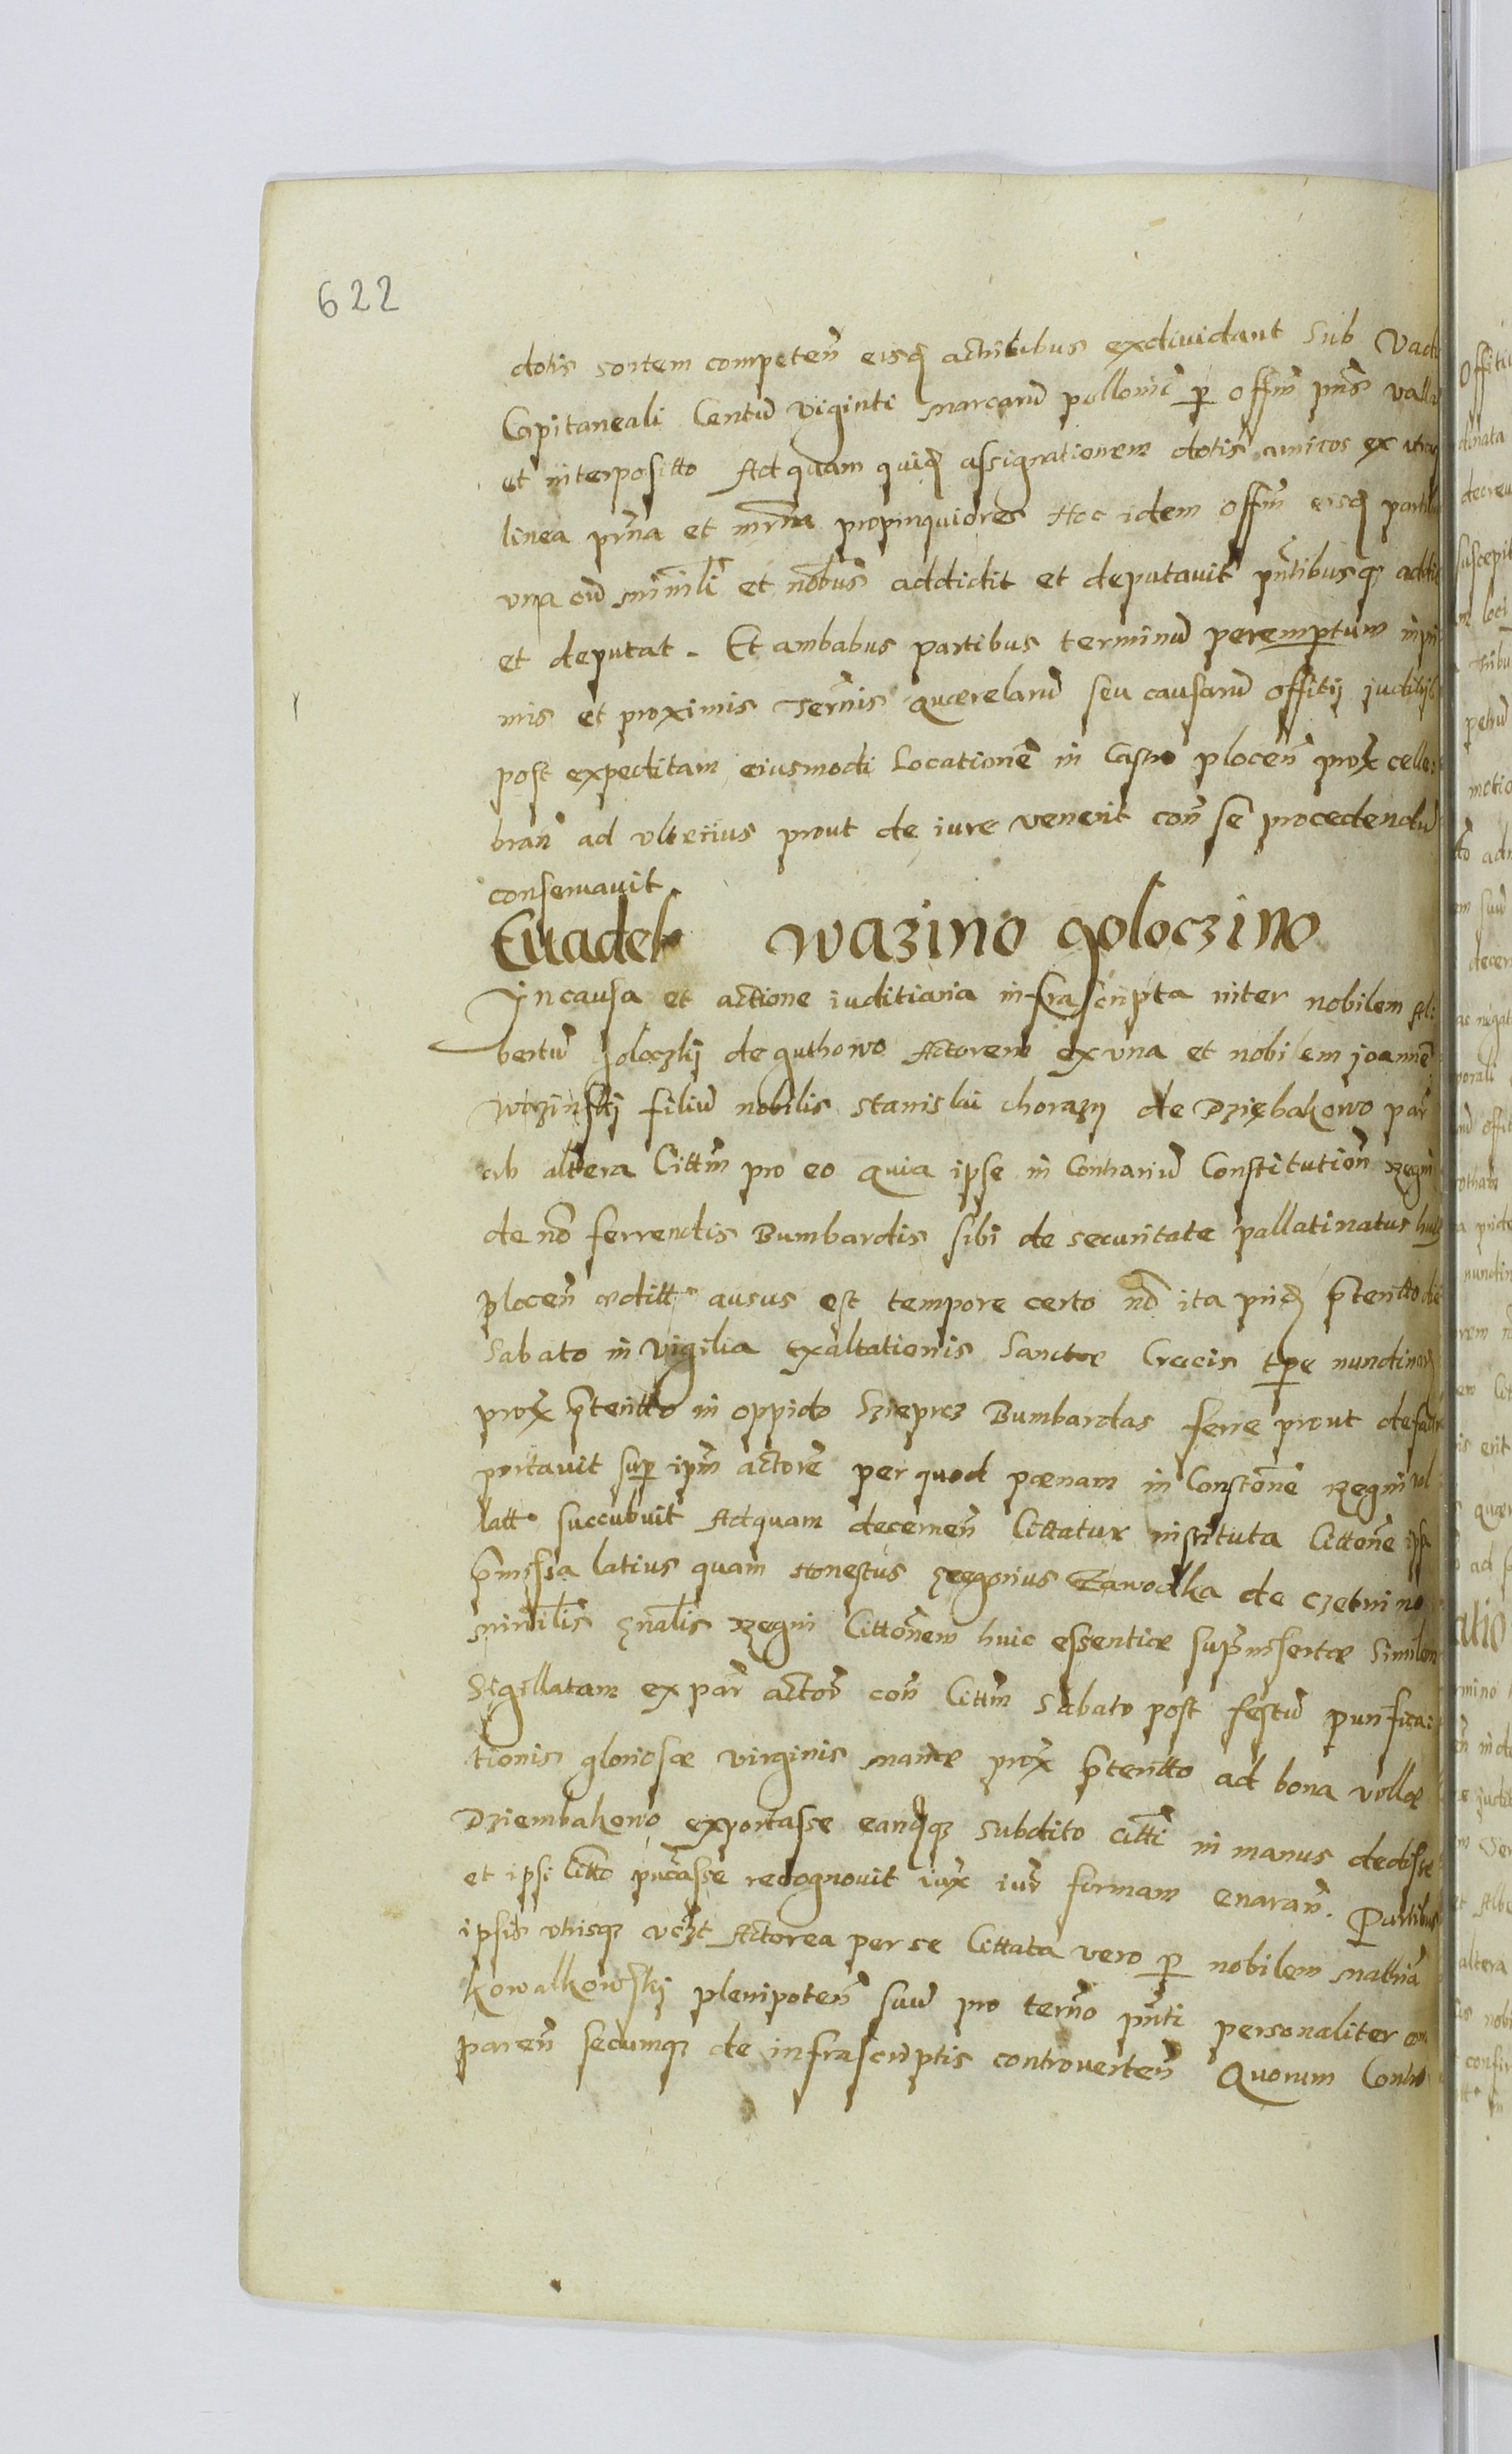 622
dotis sortem competen̄ eisq̢ actoribus exdiuidant sub Vado
Capitaneali Centū viginti marcarū pollonic̄ p̱ offm̄ pn̄s valla
et interpositto Ad quam quiq̢ assignationem dotis amicos ex vtraq̢
linea pr̄na et mr̄na propinquiores Hoc idem offm̄ eisq̢ partibus
vna cū ministli et nobus addidit et deputauit pn̄tibusq̢ addit
et deputat. Et ambabus partibus terminū peremptum in pri
mis et proximis Ternis quærelarū seu causarū offitij juditij
post expeditam eiusmodi Locationē in Castro plocen̄ prox celle:
bran̄ ad vlterius prout de iure venerit con̄ se procedendū
conseruauit.
Euadel wazino goloczino
In causa et actione iuditiaria infrascripta inter nobilem Al:
bertū goloczkij de guthowo Actorem ex vna et nobilem joannē
wazinskij filiū nobilis Stanislai chorazy de Dziębakowo par̄
ab altera Cittm̄ pro eo quia ipse in Contrariū Constitution̄ Regni
de nō ferrendis Bumbardis sibi de securitate pallatinatus huiq̢
plocen̄ æditt ausus est tempore certo nō ita priq̢ p̄teritto die
Sabato in vigilia exaltationis Sanctæ Crucis tp̱e nundinarq̢
prox p̄teritto in oppido Szieprcz Bumbardas ferre prout de facto
portauit sup ipm̄ actorē per quod pænam in Constōne Regni vol
latt succubuit Ad quam decernen̄ Cittatur instituta Cittōne ipsa
p̄missa latius quam Honestus Gregorius Zawodka de Czetnino
ministlis gnalis Regni Cittōnem huic essentiæ sup̄insertæ Similem
Sigillatam ex par̄ actor̄ con̄ Cittm̄ Sabato post festū purifica:
tionis gloriosæ virginis mariæ prox p̄teritto ad bona villæ
Dziembakowo exportasse eanq̢q̢ subdito citti in manus dedisse
et ipsi Citto pucasse recognouit iux̄ iur̄ formam enaran̄. Partibus
ipsis vtrisq̢ vczt Actorea per se Cittata vero p̱ nobilem Mathiā
Kowalkowskij plenipoten̄ suū pro terno pn̄ti personaliter com
paren̄ secumq̢ de infrascriptis controuerten̄ Quorum Contro